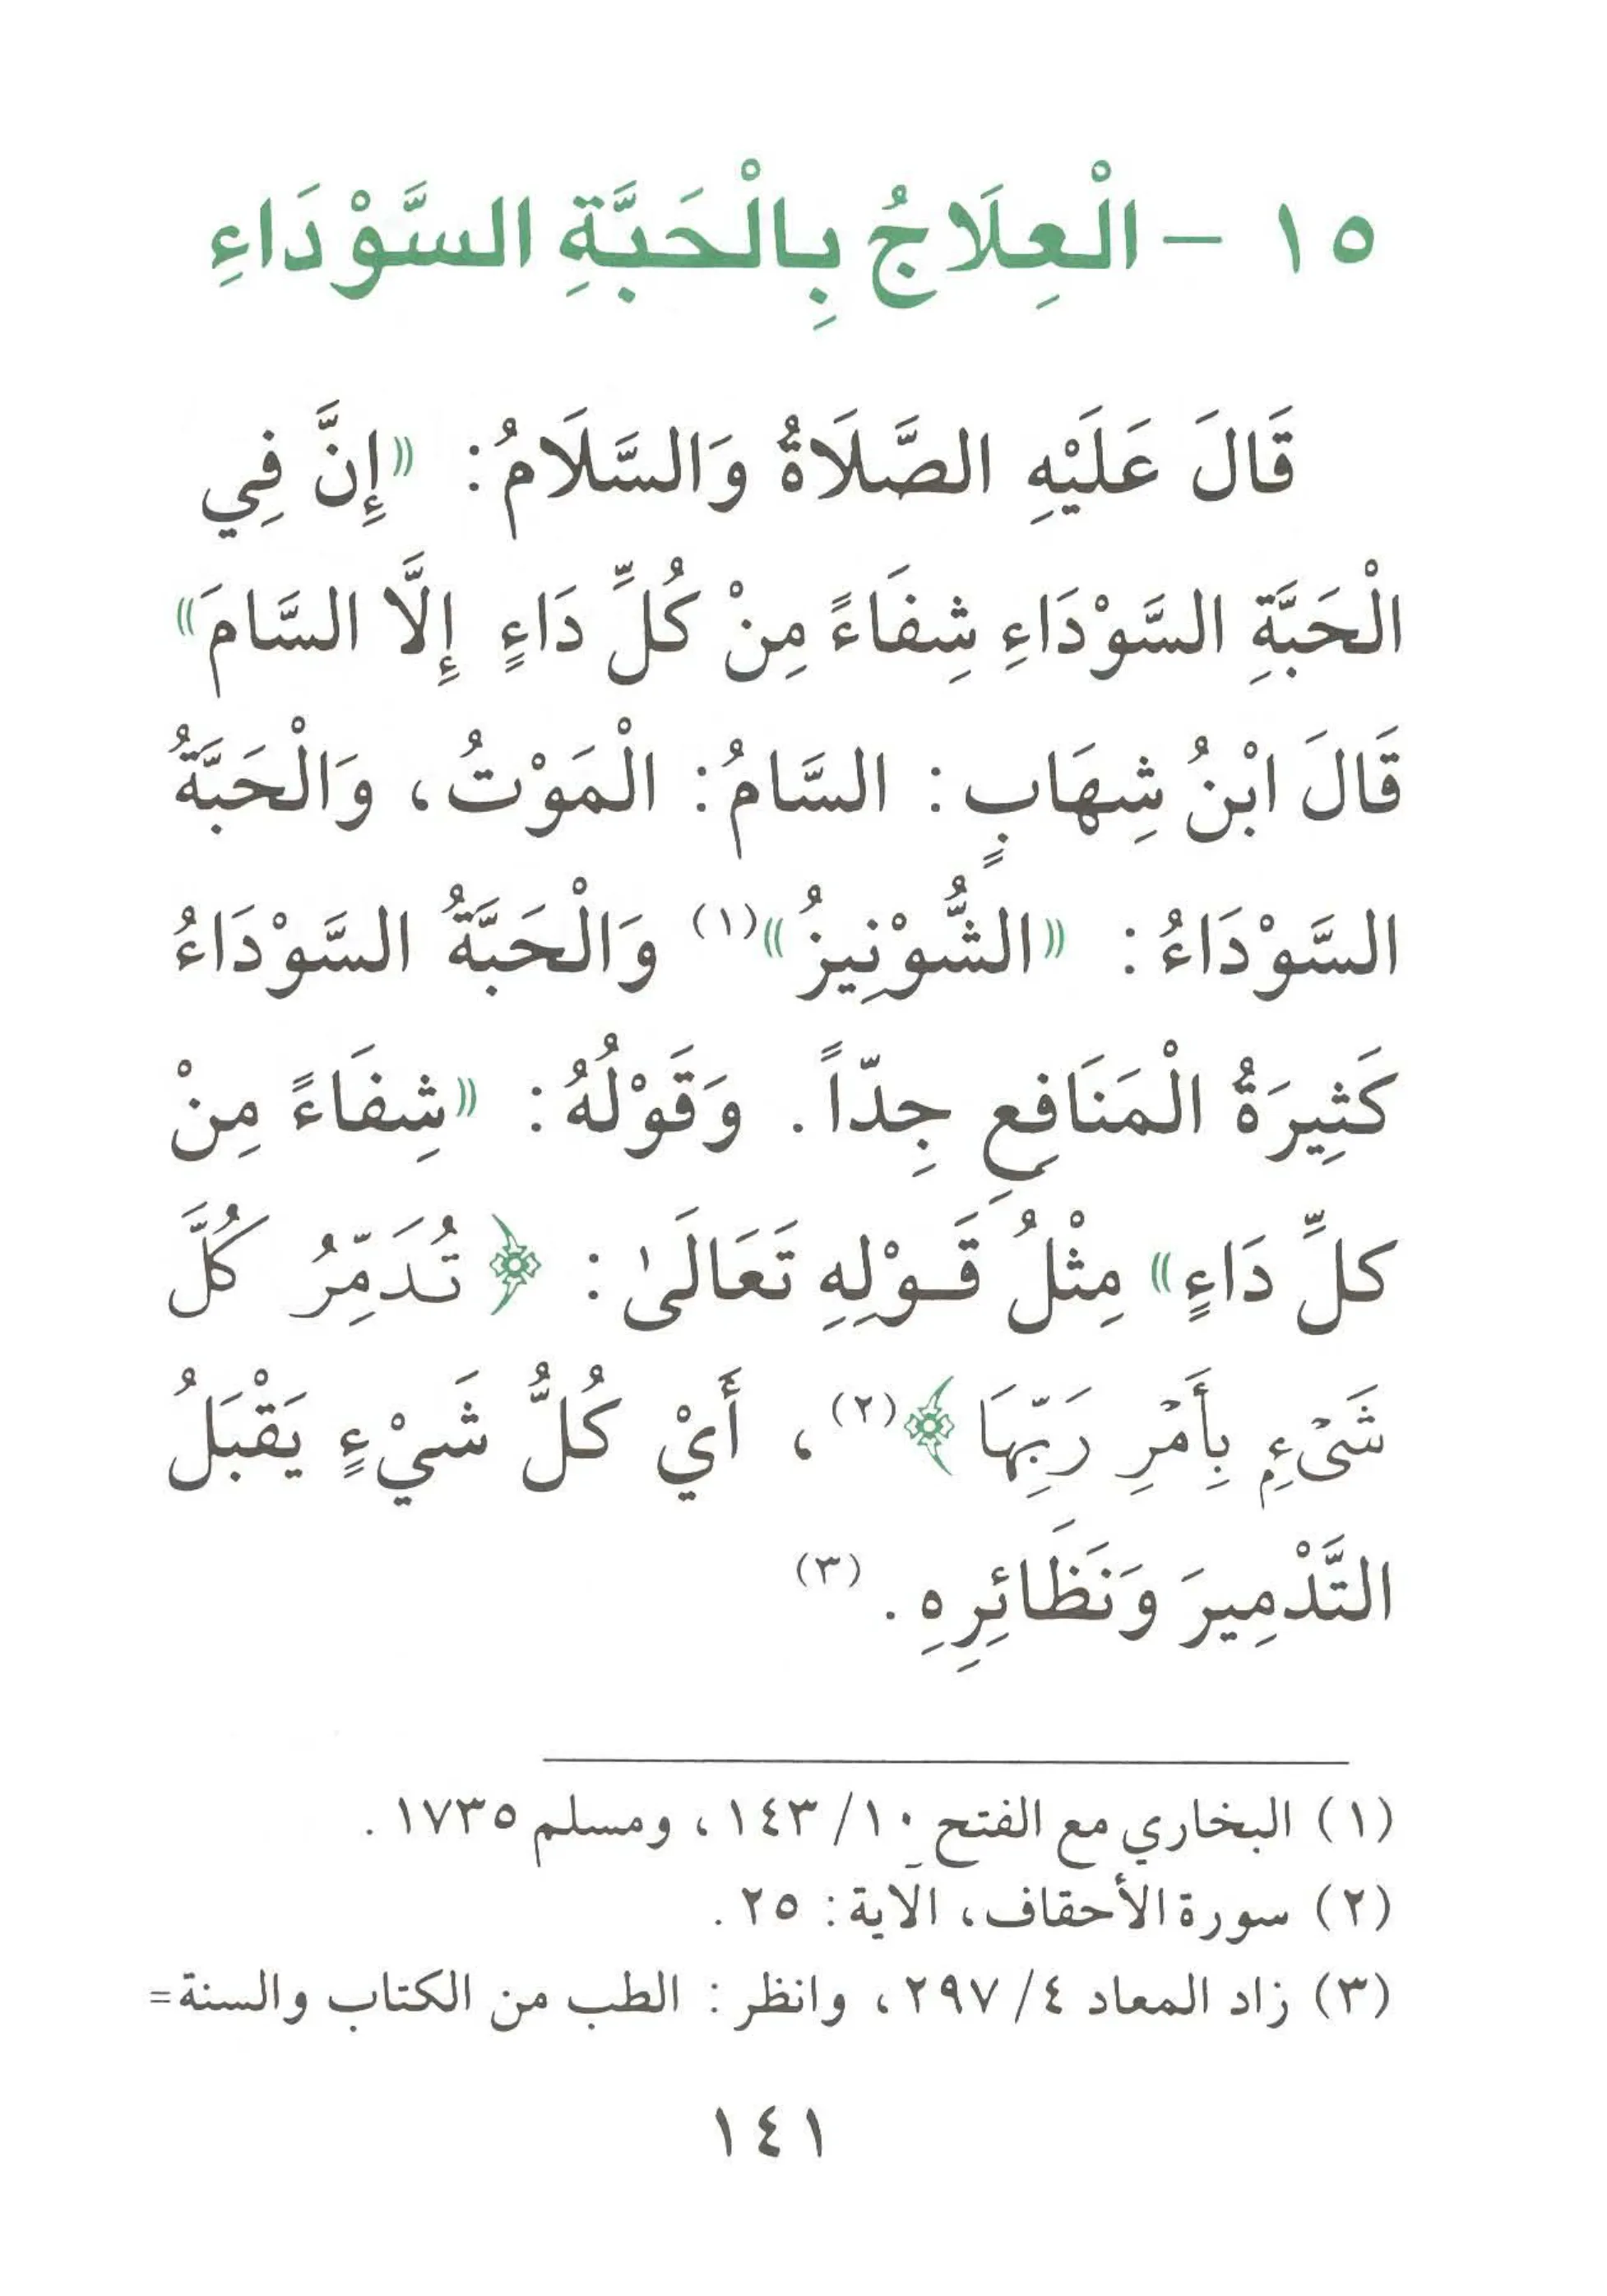 ١٥ – الْعِلَاجُ بِالْحَبَّةِ السَّوْدَاءِ
قَالَ عَلَيْهِ الصَّلَاةُ وَالسَّلَامُ: «إِنَّ فِي
الْحَبَّةِ السَّوْدَاءِ شِفَاءً مِنْ كُلِّ دَاءٍ إِلَّا السَّامَ»
قَالَ ابْنُ شِهَابٍ: السَّامُ: الْمَوْتُ، وَالْحَبَّةُ
السَّوْدَاءُ: «الشُّوْنِيزُ»(١) وَالْحَبَّةُ السَّوْدَاءُ
كَثِيرَةُ الْمَنَافِعِ جِدّاً. وَقَوْلُهُ: «شِفَاءً مِنْ
كلِّ دَاءٍ» مِثْلُ قَـوْلِهِ تَعَالَىٰ: ﴿تُدَمِّرُ كُلَّ
شَىْءٍۭ بِأَمْرِ رَبِّهَا﴾(٢)، أَيْ كُلُّ شَيْءٍ يَقْبَلُ
التَّدْمِيرَ وَنَظَائِرِهِ. (٣)
(١) البخاري مع الفتح ١٠/ ١٤٣، ومسلم ١٧٣٥.
(٢) سورة الأحقاف، الآية: ٢٥.
(٣) زاد المعاد ٤/ ٢٩٧، وانظر: الطب من الكتاب والسنة=
١٤١